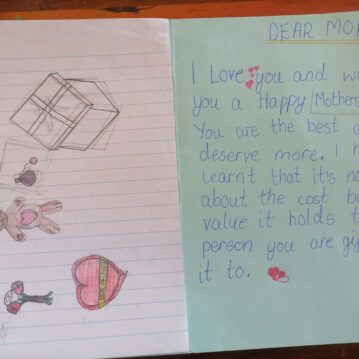 DEAR MOM
I Love you and w
you a Happy Mothers
You are the best a
deserve more. I h
learnt that it's no
about the cost bu
value it holds t
person you are gi
it to.